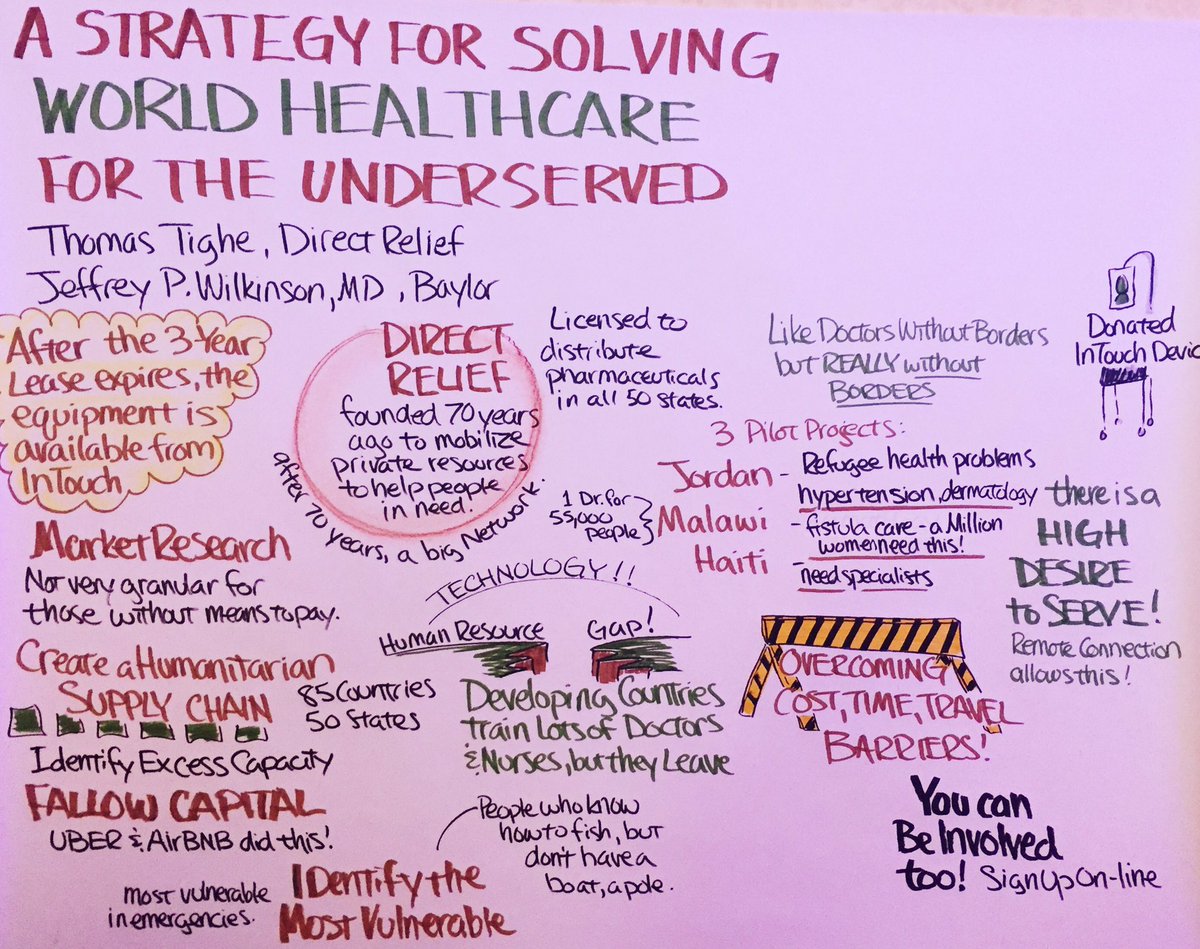 A STRATEGY FOR SOLVING
WORLD HEALTHCARE
FOR THE UNDERSERVED
Thomas Tighe, Direct Relief
Jeffrey P. Wilkinson, MD, Baylor
After the 3-Year
Lease expires, the
equipment is
available from
InTouch
DIRECT
RELIEF
founded 70 years
ago to mobilize
private resources
to help people
in need.
after 70 years, a big Network.
Licensed to
distribute
pharmaceuticals
in all 50 states.
Like Doctors Without Borders
but REALLY without
BORDERS
Donated
InTouch Devic
3 Pilot Projects:
Jordan - Refugee health problems
hypertension, dermatology
1 Dr. for
55,000
people
Malawi - fistula care - a Million
women need this!
Haiti - need specialists
there is a
HIGH
DESIRE
to SERVE!
Remote Connection
allows this!
Market Research
Not very granular for
those without means to pay.
TECHNOLOGY!!
Human Resource Gap!
Developing Countries
train lots of Doctors
& Nurses, but they Leave
OVERCOMING
COST, TIME, TRAVEL
BARRIERS!
Create a Humanitarian
SUPPLY CHAIN
85 Countries
50 States
Identify Excess Capacity
FALLOW CAPITAL
UBER & AirBNB did this!
People who know
how to fish, but
don't have a
boat, a pole.
IDentify the
Most Vulnerable
most vulnerable
in emergencies.
You can
Be Involved
too! Sign Up On-line